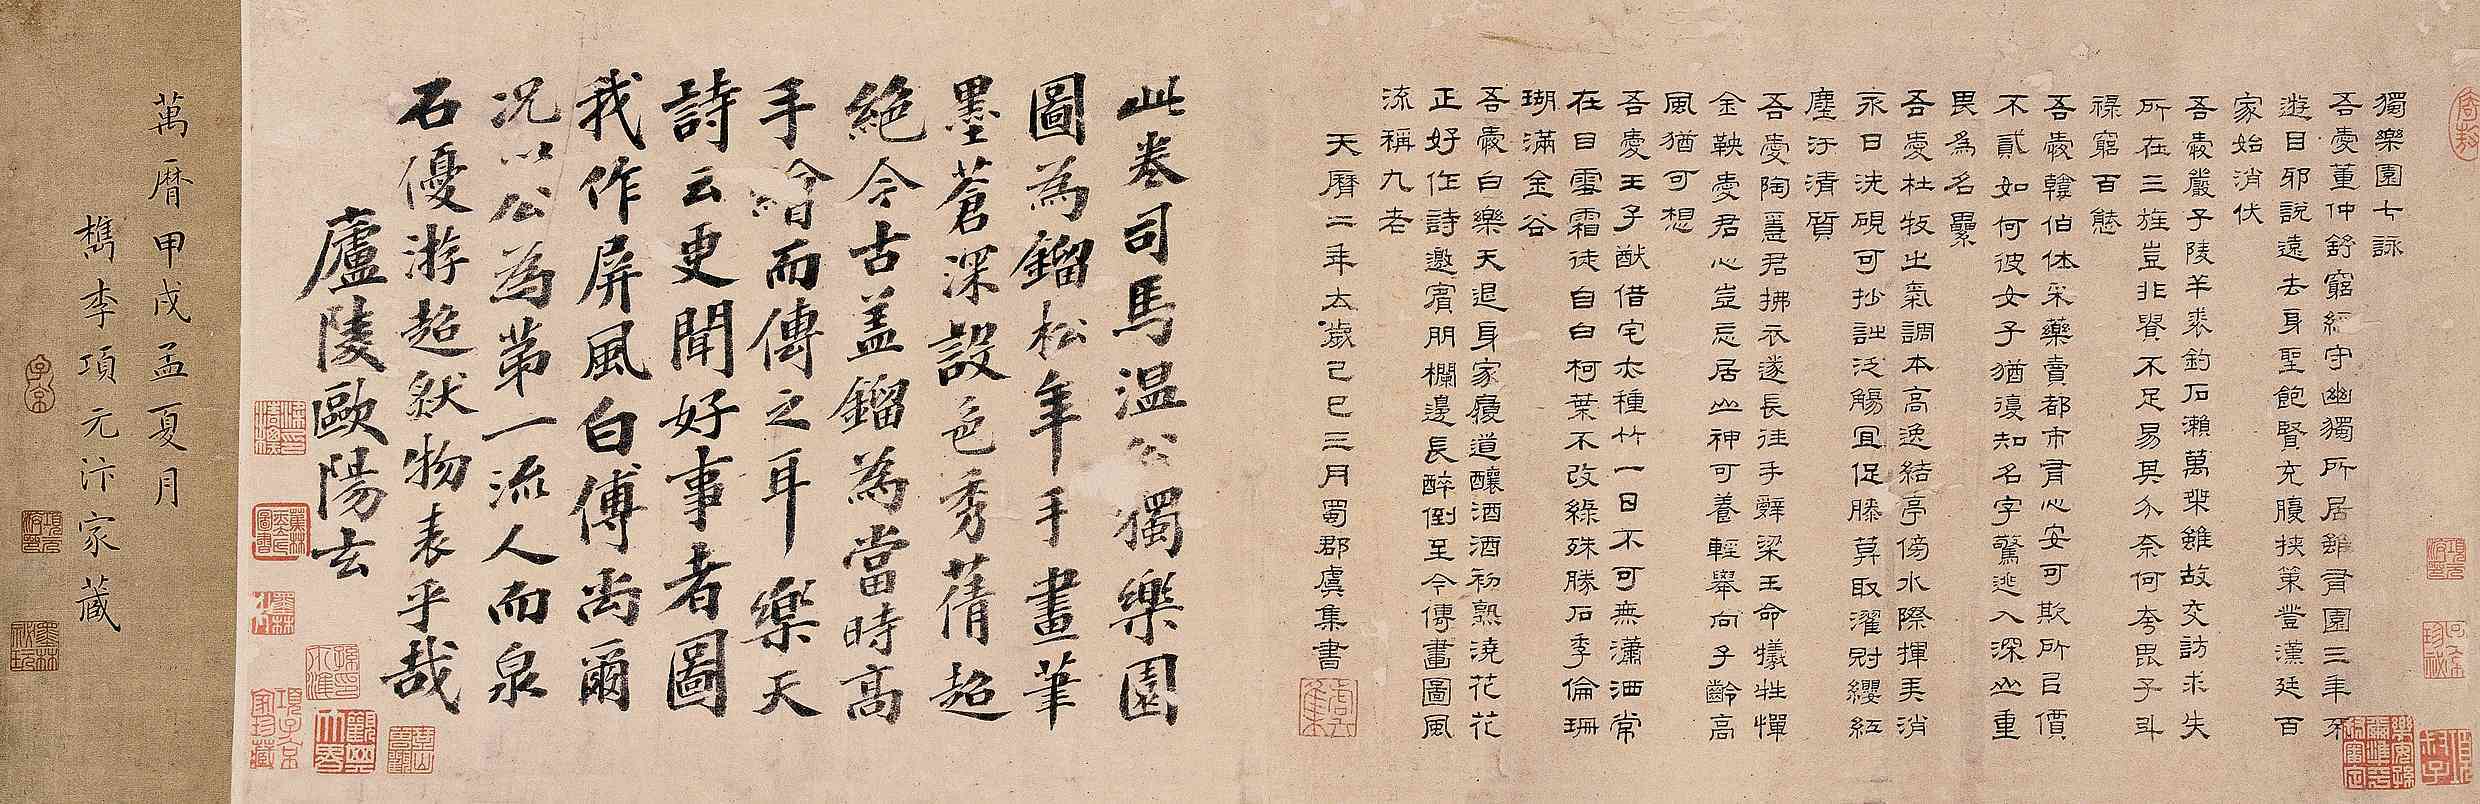 獨樂園七詠
吾愛董仲舒窮經守幽獨所居雖有園三年不
遊目邪說遠去身聖飽賢充腹挾策登漢廷百
家始消伏
吾愛嚴子陵羊裘釣石瀨萬乘雖故交訪求失
所在三旌豈非貴不足易其介奈何夸毘子斗
祿窮百態
吾愛韓伯休采藥賣都市有心安可欺所以價
不貳如何彼女子猶復知名字驚逃入深山重
畏爲名纍
吾愛杜牧之氣調本高逸結亭傍水際揮弄消
永日洗硯可抄詩泛觴宜促膝莫取濯冠纓紅
塵汙清質
吾愛陶隱君拂衣遂長往手辭梁王命犧牲憚
金鞅愛君心豈忘居山神可養輕舉向千齡高
風猶可想
吾愛王子猷借宅亦種竹一日不可無瀟洒常
在目雪霜徒自白柯葉不改綠殊勝石季倫珊
瑚滿金谷
吾愛白樂天退身家履道釀酒酒初熟澆花花
正好作詩邀賓朋欄邊長醉倒至今傳畫圖風
流稱九老
天曆二年太歲己巳三月蜀郡虞集書
此卷司馬温公獨樂園
圖為鎦松年手畫筆
墨蒼深設色秀蒨超
絕今古盖鎦為當時高
手繪而傳之耳樂天
詩云更聞好事者圖
我作屏風白傅尚爾
況以公為第一流人而泉
石優游超然物表乎哉
廬陵歐陽玄
萬曆甲戌孟夏月
檇李項元汴家藏